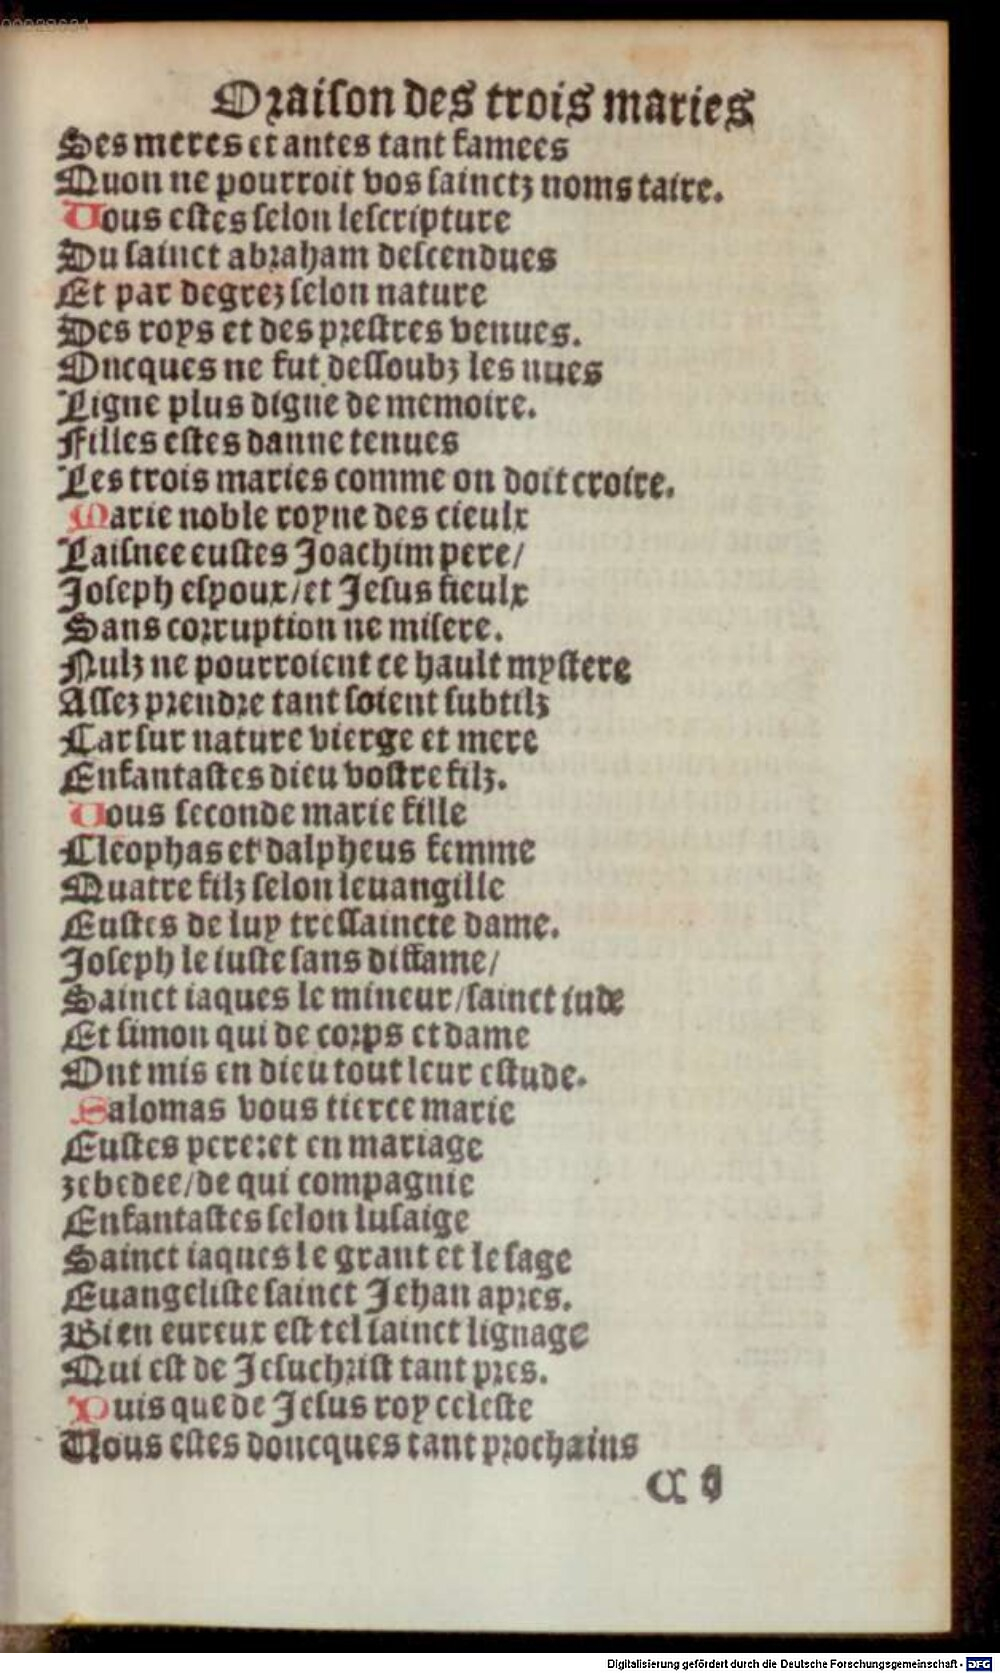 00028634
Oraison des trois maries
Ses meres et antes tant famees
Quon ne pourroit vos sainctz noms taire.
Vous estes selon lescripture
Du sainct abraham descendues
Et par degrez selon nature
Des roys et des prestres venues.
Oncques ne fut dessoubz les nues
Ligne plus digne de memoire.
Filles estes danne tenues
Les trois maries comme on doit croire.
Marie noble royne des cieulx
Laisnee eustes Joachim pere/
Joseph espoux/et Jesus fieulx
Sans corruption ne misere.
Nulz ne pourroient ce hault mystere
Assez prendre tant soient subtilz
Car sur nature vierge et mere
Enfantastes dieu vostre filz.
Vous seconde marie fille
Cleophas et dalpheus femme
Quatre filz selon leuangille
Eustes de luy tressaincte dame.
Joseph le iuste sans diffame/
Sainct iaques le mineur/sainct iude
Et simon qui de corps et dame
Ont mis en dieu tout leur estude.
Salomas vous tierce marie
Eustes pere:et en mariage
zebedee/de qui compagnie
Enfantastes selon lusaige
Sainct iaques le grant et le sage
Euangeliste sainct Jehan apres.
Bien eureux est tel sainct lignage
Qui est de Jesuchrist tant pres.
Puis que de Jesus roy celeste
Vous estes doncques tant prochains
Digitalisierung gefördert durch die Deutsche Forschungsgemeinschaft - DFG